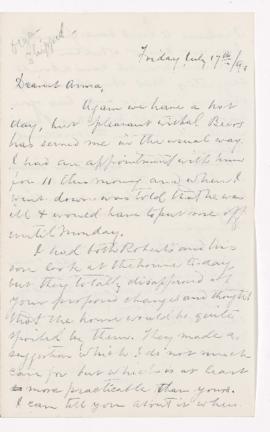 Organ
Shipped.
Friday, July 17th/91
Dearest Anna,
Again we have a hot
day, but pleasant withal. Beers
has served me in the usual way.
I had an appointment with him
for 11 this morning and when I
went down was told that he was
ill & would have to put me off
until Monday.
I had both Roberts and his
son look at the house to-day
but they totally disapproved of
your proposed changes and thought
that the house would be quite
spoiled by them. They made a
suggestion which I do not much
care for but which is at least
more practicable than yours.
I can tell you about it when